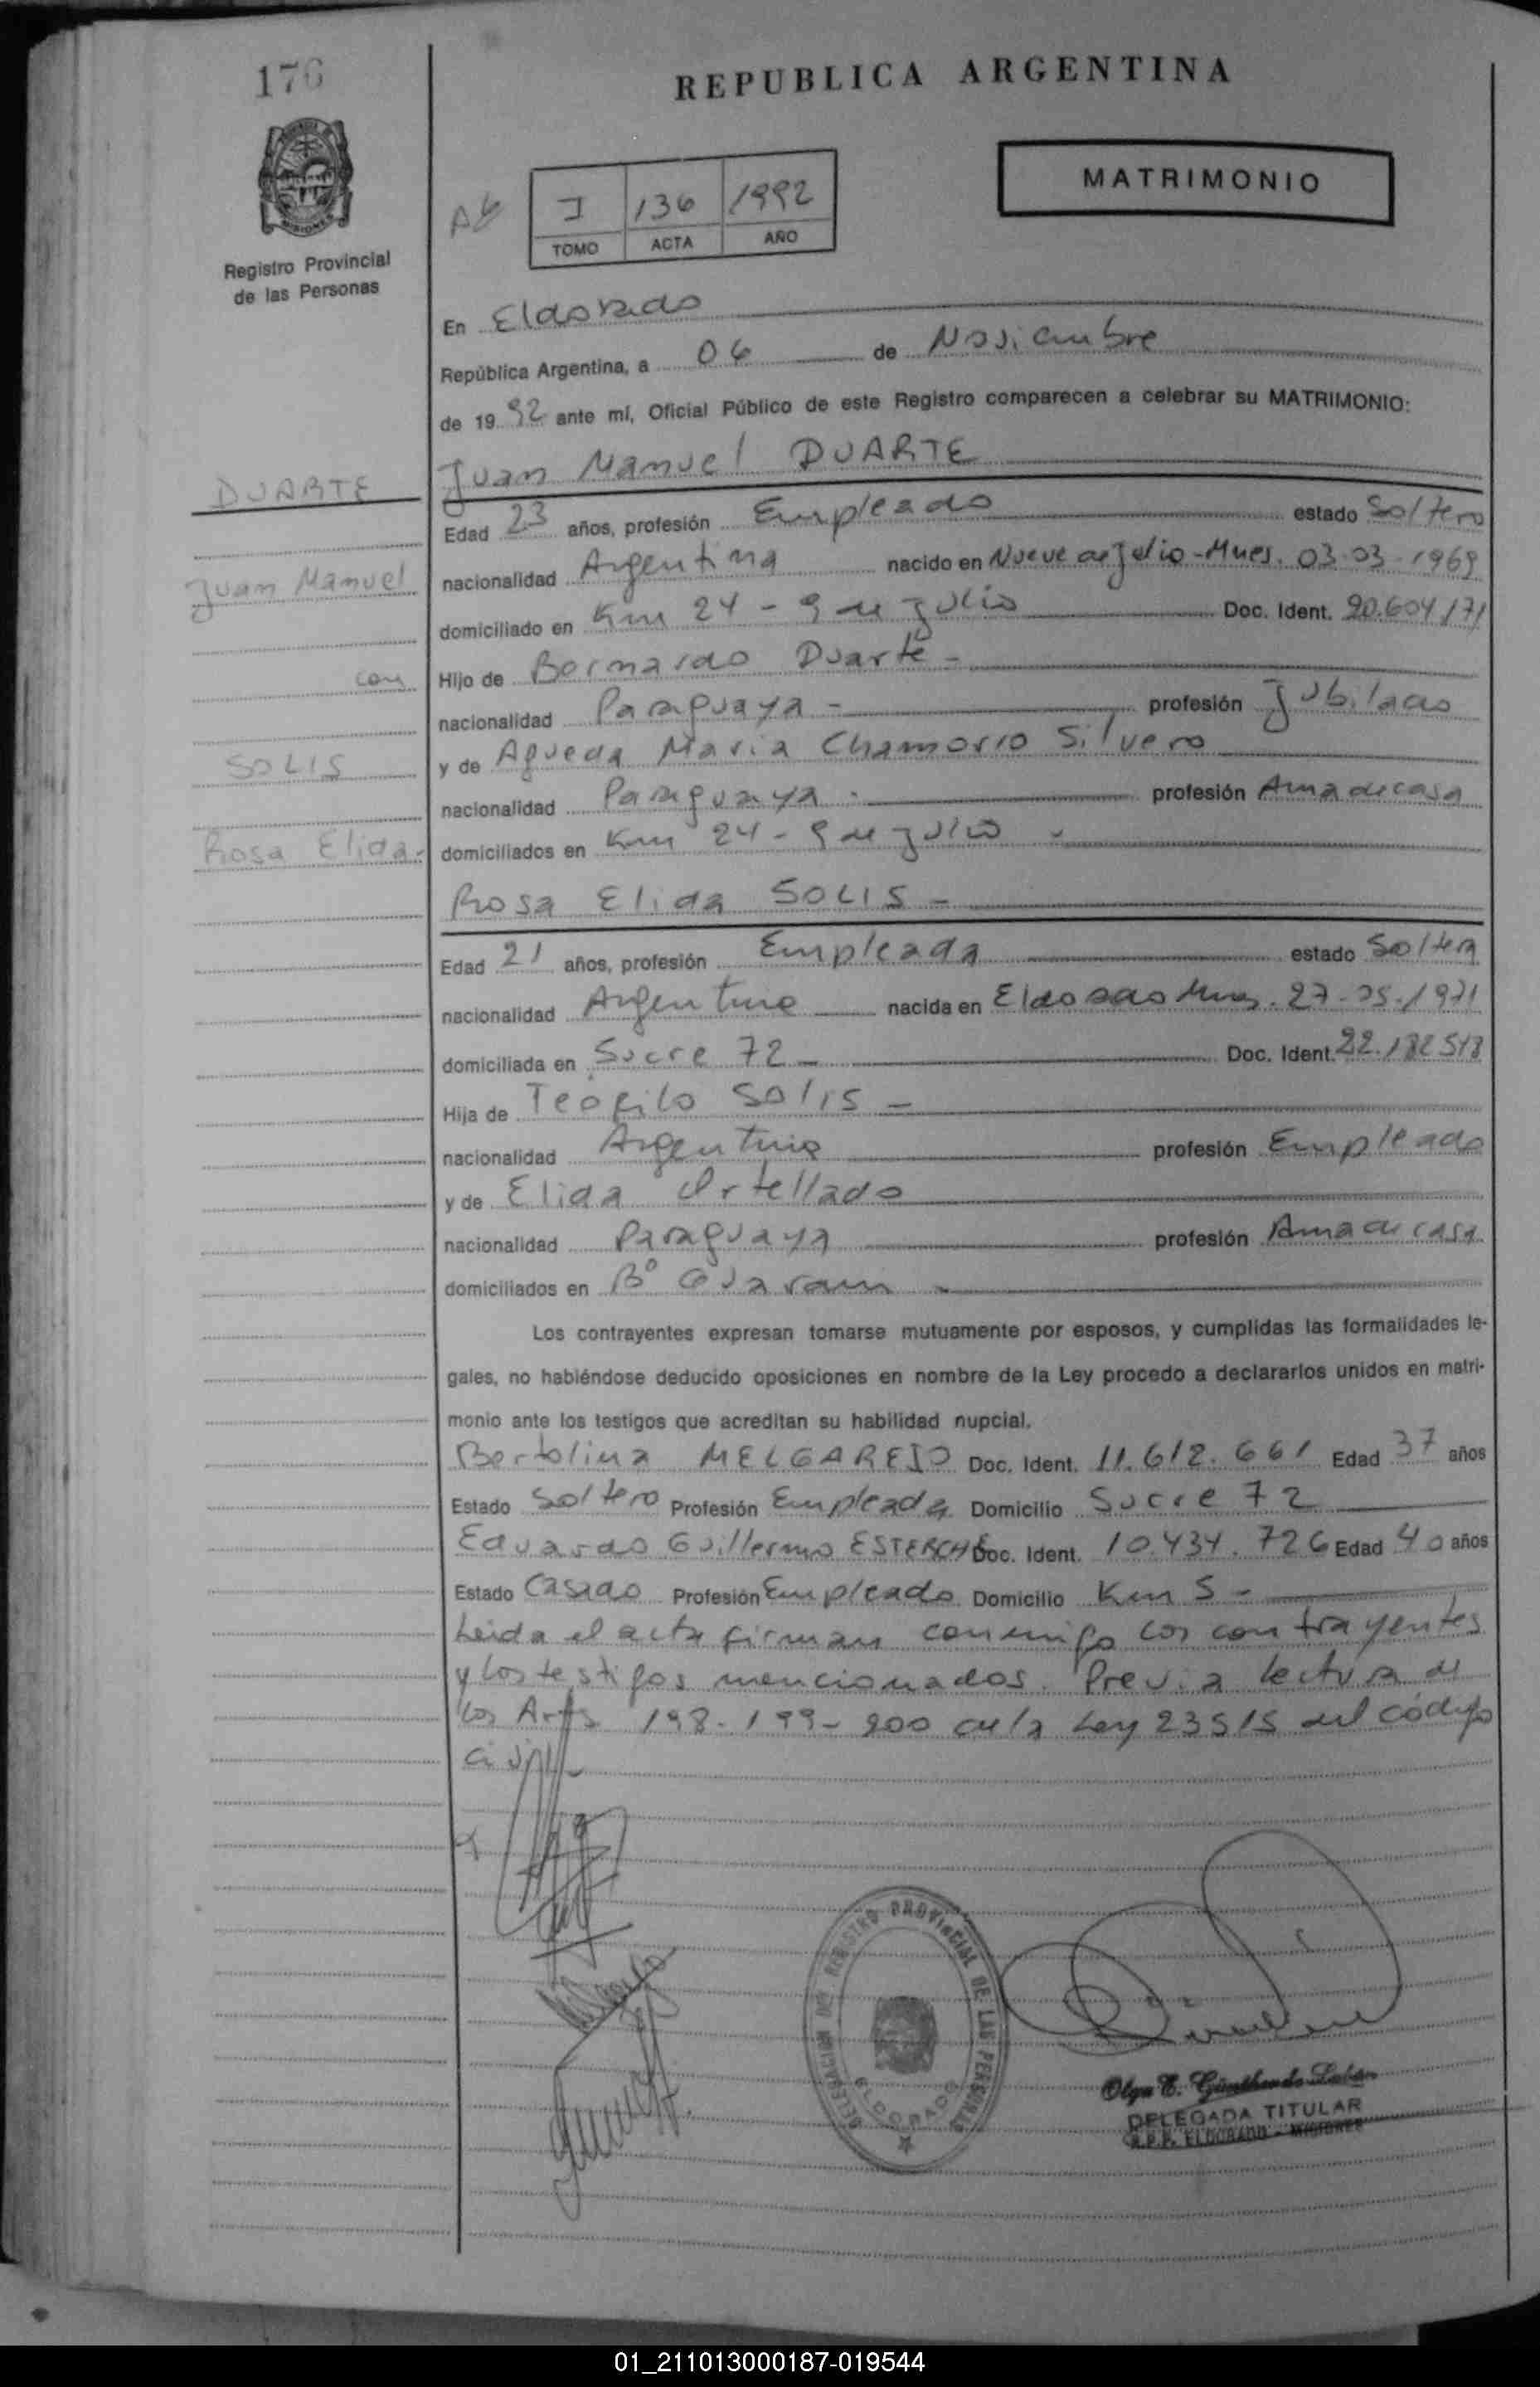 176
REPUBLICA ARGENTINA
MATRIMONIO
I 136 1992
TOMO ACTA AÑO
Registro Provincial
de las Personas
En Eldorado
República Argentina, a 06 de Noviembre
de 1992 ante mí, Oficial Público de este Registro comparecen a celebrar su MATRIMONIO:
Juan Manuel DUARTE
DUARTE
Edad 23 años, profesión Empleado estado Soltero
Juan Manuel
nacionalidad Argentina nacido en Nueve de Julio - Mnes. 03-03-1969
domiciliado en Km 24 - 9 de Julio Doc. Ident. 20.604.171
con
Hijo de Bernardo Duarte -
nacionalidad Paraguaya - profesión Jubilado
SOLIS
y de Agueda Maria Chamorro Silvero
nacionalidad Paraguaya - profesión Ama de casa
Rosa Elida-
domiciliados en Km 24 - 9 de Julio -
Rosa Elida SOLIS -
Edad 21 años, profesión Empleada estado Soltera
nacionalidad Argentina nacida en Eldorado Mnes. 27-05-1971
domiciliada en Sucre 72 - Doc. Ident. 22.182513
Hija de Teofilo Solis -
nacionalidad Argentina profesión Empleado
y de Elida Ortellado
nacionalidad Paraguaya profesión Ama de casa
domiciliados en Bº Guarani -
Los contrayentes expresan tomarse mutuamente por esposos, y cumplidas las formalidades le-
gales, no habiéndose deducido oposiciones en nombre de la Ley procedo a declararlos unidos en matri-
monio ante los testigos que acreditan su habilidad nupcial.
Bertolina MELGAREJO Doc. Ident. 11.612.661 Edad 37 años
Estado Soltero Profesión Empleada Domicilio Sucre 72
Eduardo Guillermo ESTERCHE Doc. Ident. 10.434.726 Edad 40 años
Estado Casado Profesión Empleado Domicilio Km 5 -
Leida el acta firman conmigo los contrayentes
y los testigos mencionados. Previa lectura de
los Arts 198-199-200 de la Ley 23515 del código
civil
DELEGACION DEL REGISTRO PROVINCIAL DE LAS PERSONAS
ELDORADO
Olga E. Günther de
DELEGADA TITULAR
R.P.P. ELDORADO - MISIONES
01_211013000187-019544